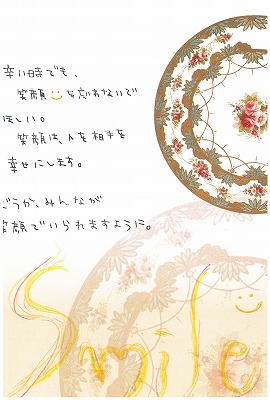 辛い時でも、
笑顔を忘れないで
ほしい。
笑顔は、人を相手を
幸せにします。
どうか、みんなが
笑顔でいられますように。
Smile